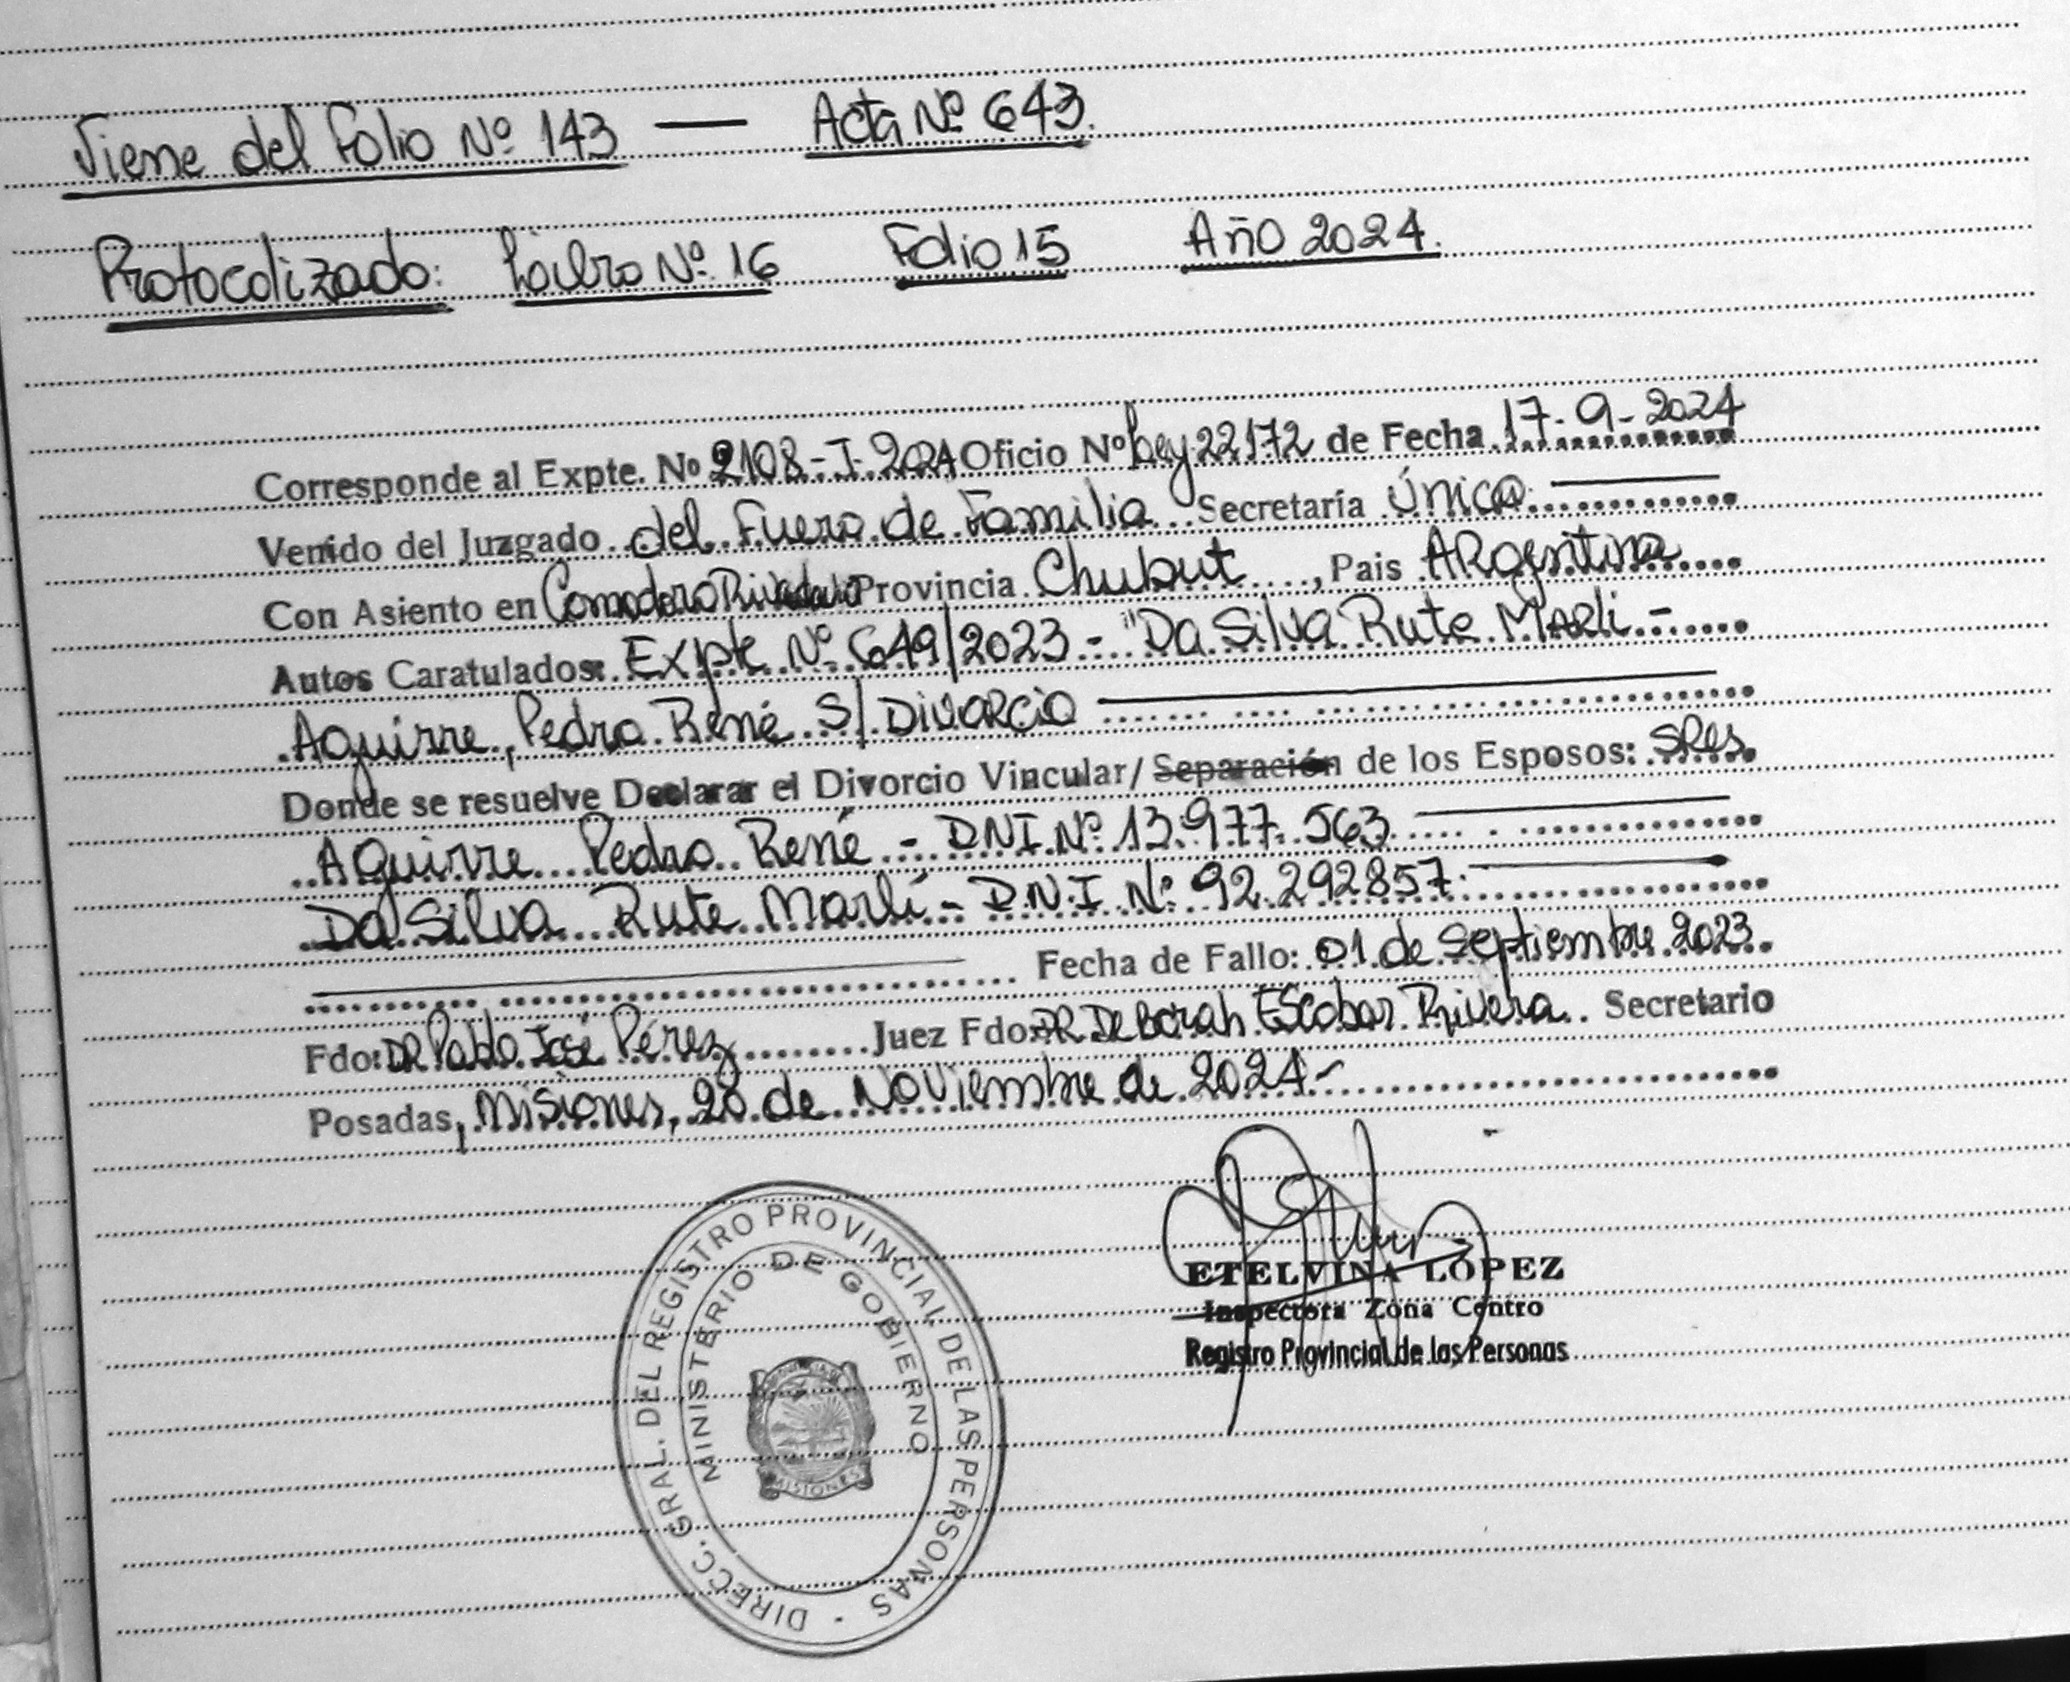 Viene del Folio Nº 143 — Acta Nº 643.
Protocolizado: Libro Nº 16 Folio 15 Año 2024.
Corresponde al Expte. Nº 2108-I-2024 Oficio Nº Ley 22172 de Fecha 17-9-2024
Venido del Juzgado del Fuero de Familia Secretaría Única
Con Asiento en Comodoro Rivadavia Provincia Chubut, Pais Argentina
Autos Caratulados: Expte Nº 649/2023 - "Da Silva Rute Marli -
Aguirre, Pedro René S/ Divorcio
Donde se resuelve Declarar el Divorcio Vincular/ Separación de los Esposos: Sres.
Aguirre Pedro René - DNI Nº 13.977.563
Da Silva Rute Marlí - D.N.I Nº 92.292857
Fecha de Fallo: 01 de Septiembre 2023.
Fdo: DR Pablo José Pérez Juez Fdo: DR. Deborah Escobar Rivera. Secretario
Posadas, Misiones, 20 de Noviembre de 2024-
DIRECC. GRAL. DEL REGISTRO PROVINCIAL DE LAS PERSONAS
MINISTERIO DE GOBIERNO
MISIONES
ETELVINA LOPEZ
Inspectora Zona Centro
Registro Provincial de las Personas